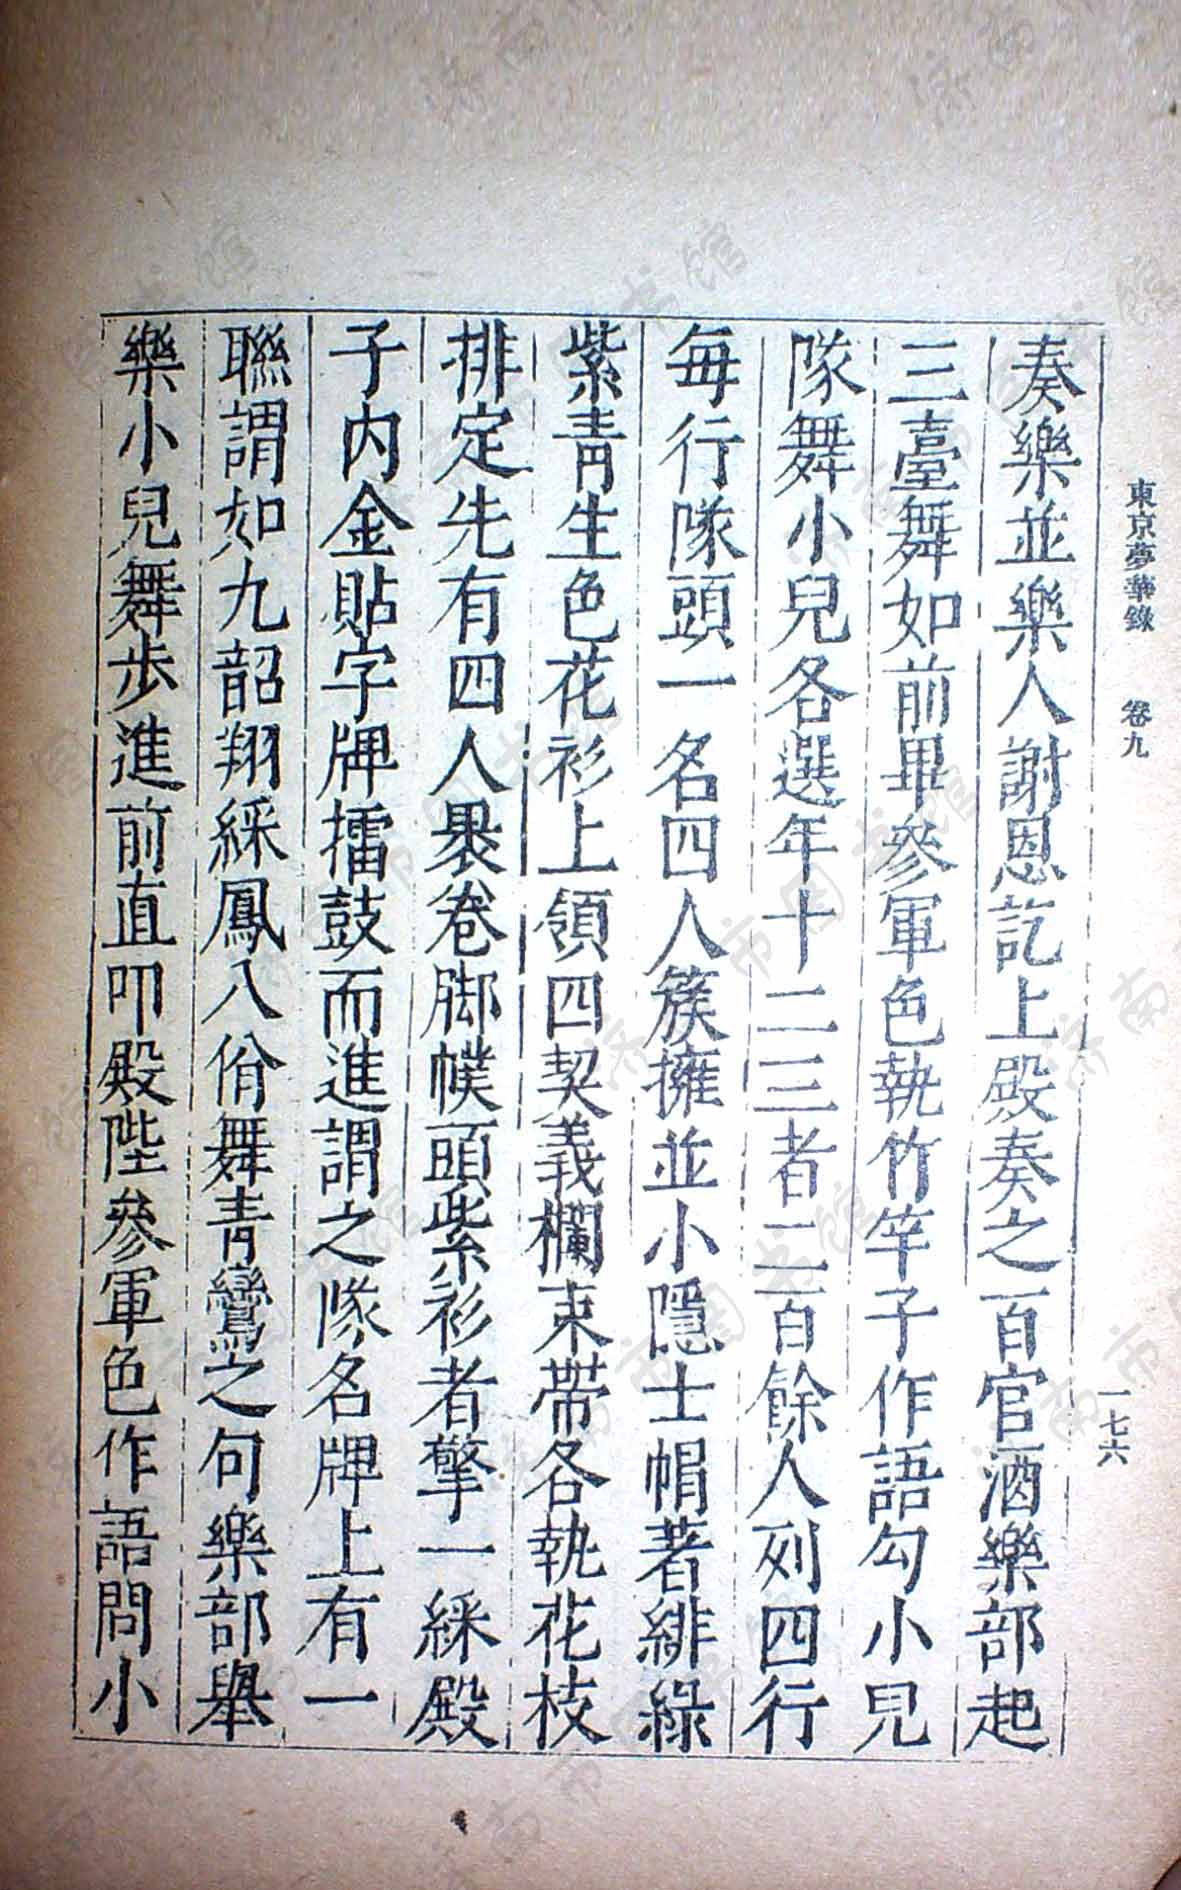 東京夢華錄 卷九
一七六
奏樂並樂人謝恩訖上殿奏之百官酒樂部起
三臺舞如前畢參軍色執竹竿子作語勾小兒
隊舞小兒各選年十二三者二百餘人列四行
每行隊頭一名四人簇擁並小隱士帽著緋綠
紫青生色花衫上領四契義襴束帶各執花枝
排定先有四人褁卷脚幞頭紫衫者擎一綵殿
子内金貼字牌擂鼓而進謂之隊名牌上有一
聯謂如九韶翔綵鳳八佾舞青鸞之句樂部舉
樂小兒舞步進前直叩殿陛參軍色作語問小
濟南市图书馆